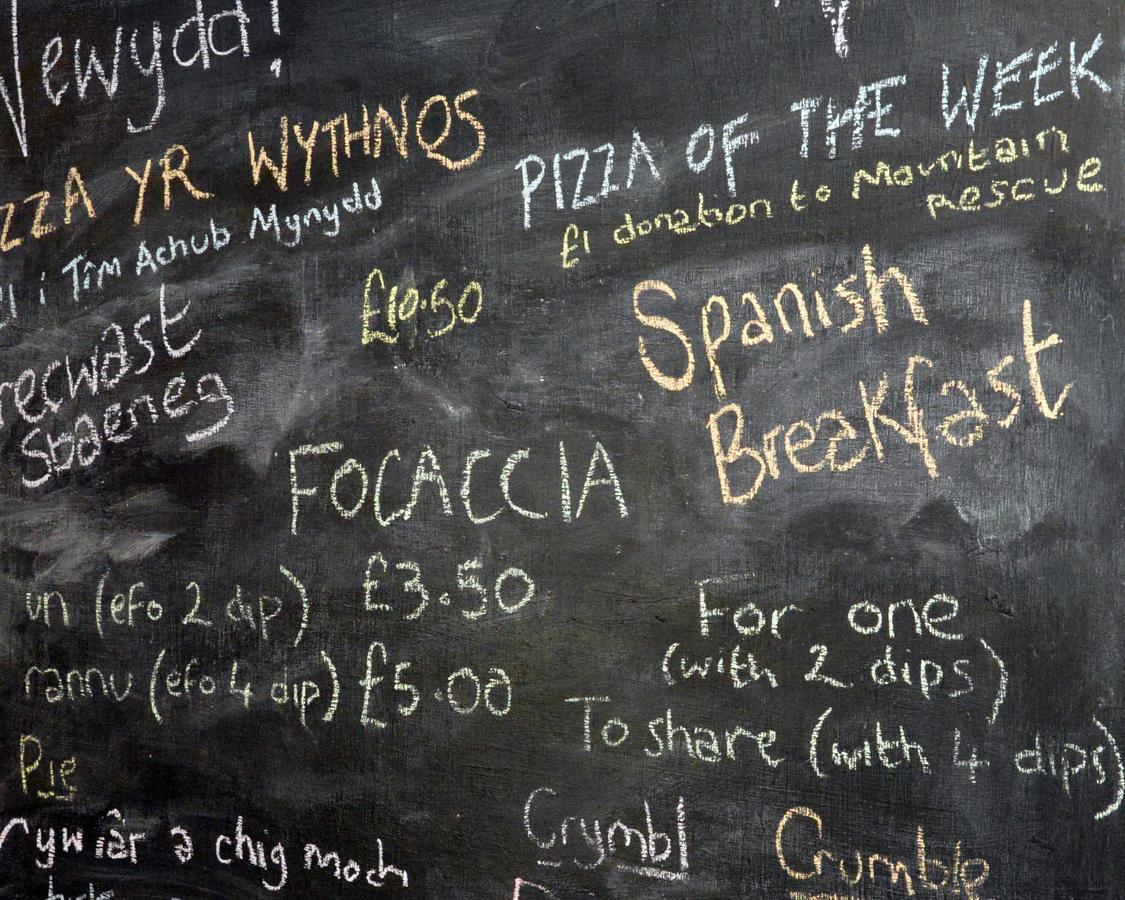 Newydd!
PIZZA YR WYTHNOS
£1 i Tîm Achub Mynydd
PIZZA OF THE WEEK
£1 donation to Mountain
rescue
£10.50
Brecwast
Sbaeneg
Spanish
Breakfast
FOCACCIA
un (efo 2 dip) £3.50
rannu (efo 4 dip) £5.00
For one
(with 2 dips)
To share (with 4 dips)
Pie
Cyw iâr a chig moch
Crymbl
Crumble